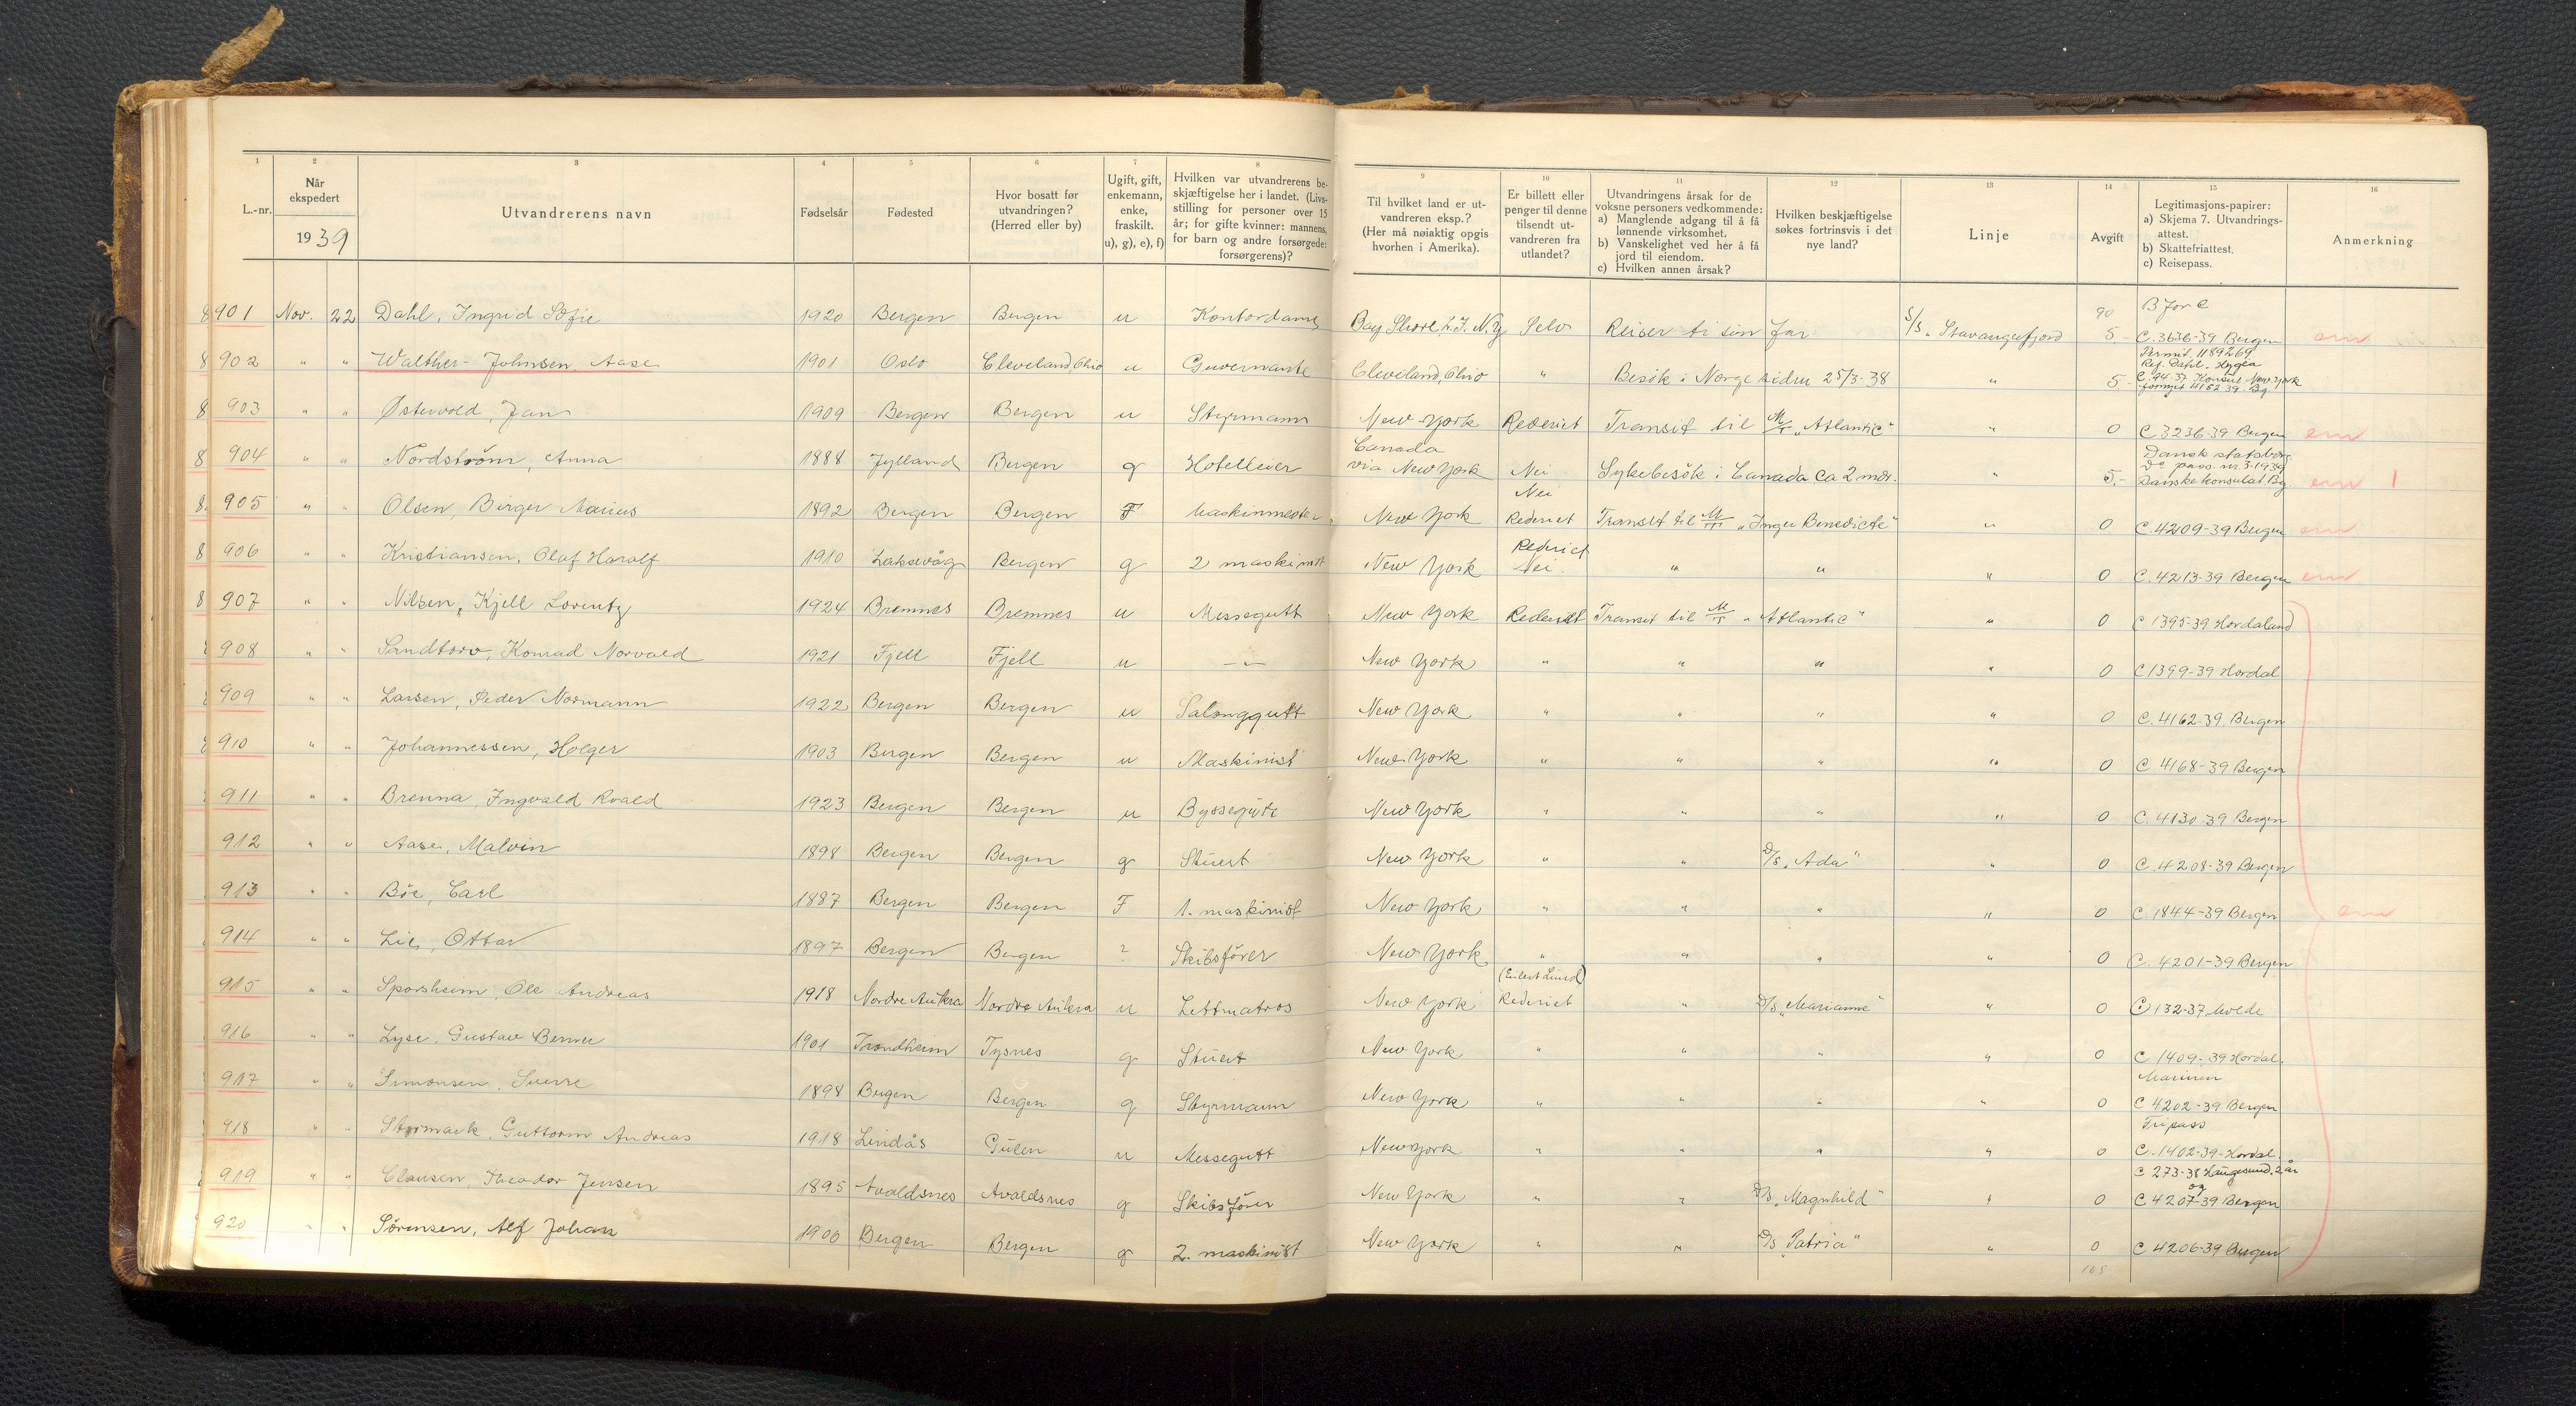 1 2 3 4 5 6 7 8 9 10 11 12 13 14 15 16
L.-nr. | Når ekspedert 1939 | Utvandrerens navn | Fødselsår | Fødested | Hvor bosatt før utvandringen? (Herred eller by) | Ugift, gift, enkemann, enke, fraskilt. u), g), e), f) | Hvilken var utvandrerens beskjæftigelse her i landet. (Livsstilling for personer over 15 år; for gifte kvinner: mannens, for barn og andre forsørgede: forsørgerens)? | Til hvilket land er utvandreren eksp.? (Her må nøiaktig opgis hvorhen i Amerika). | Er billett eller penger til denne tilsendt utvandreren fra utlandet? | Utvandringens årsak for de voksne personers vedkommende: a) Manglende adgang til å få lønnende virksomhet. b) Vanskelighet ved her å få jord til eiendom. c) Hvilken annen årsak? | Hvilken beskjæftigelse søkes fortrinsvis i det nye land? | Linje | Avgift | Legitimasjons-papirer: a) Skjema 7. Utvandringsattest. b) Skattefriattest. c) Reisepass. | Anmerkning
8901 Nov. 22 Dahl, Ingrid Sofie 1920 Bergen Bergen u Kontordame Bay Shore L.I. N.Y. Selv Reiser til sin far S/S „Stavangerfjord 90 5.- B for C C. 3636-39 Bergen
8902 " " Walther-Johnsen, Aase 1901 Oslo Cleveland, Ohio u Guvernante Cleveland, Ohio " Besøk i Norge siden 25/3-38 " 5.- Permit. 1189269. C. 94-37 Konsul New York
8903 " " Østervold, Jan 1909 Bergen Bergen u Styrmann New York Rederiet Transit til M/T „Atlantic" " 0 C 3236-39 Bergen
8904 " " Nordstrøm, Anna 1888 Jylland Bergen g Hotelleier Canada via New York Nei Sykebesøk i Canada ca 2 mdr. " 5.- Dansk statsborg. Do pass. nr. 3-1939 Danske konsulat Bg 1
8905 " " Olsen, Birger Marius 1892 Bergen Bergen F Maskinmester New York Nei Rederiet Transit til M/T „Inger Benedicte" " 0 C. 4209-39 Bergen
8906 " " Kristiansen, Olaf Haralf 1910 Laksevåg Bergen g 2 maskinist New York Rederiet Nei. " " " 0 C. 4213-39 Bergen
8907 " " Nilsen, Kjell Lorentz 1924 Bremnes Bremnes u Messegutt New York Rederiet Transit til M/T „Atlantic" " 0 C 1395-39 Hordaland
908 " " Sandtorv, Konrad Norvald 1921 Fjell Fjell u —"— New York " " " " 0 C 1399-39 Hordal
909 " " Larsen, Peder Normann 1922 Bergen Bergen u Salonggutt New York " " " " 0 C. 4162-39. Bergen
910 " " Johannessen, Holger 1903 Bergen Bergen u Maskinist New York " " " " 0 C 4168-39 Bergen
911 " " Brenna, Ingvald Roald 1923 Bergen Bergen u Byssegutt New York " " " " 0 C. 4130-39 Bergen
912 " " Aase, Malvin 1898 Bergen Bergen g Stuert New York " " D/S „Ada" " 0 C. 4208-39 Bergen
913 " " Böe, Carl 1887 Bergen Bergen F 1. maskinist New York " " " " 0 C. 1844-39 Bergen
914 " " Lie, Ottar 1897 Bergen Bergen ? Skibsfører New York " " " " 0 C. 4201-39 Bergen
915 " " Sporsheim, Ole Andreas 1918 Nordre Aukra Nordre Aukra u Lettmatros New York (Eilert Lund) Rederiet " D/S „Marianne" " 0 C 132-37 Molde
916 " " Lyse, Gustav Berner 1901 Trondheim Tysnes g Stuert New York " " " " 0 C 1409-39 Hordal.
917 " " Simonsen, Sverre 1898 Bergen Bergen g Styrmann New York " " " " 0 Marinen C 4202-39 Bergen
918 " " Styrmark, Guttorm Andreas 1918 Lindås Gulen u Messegutt New York " " " " 0 Fripass C. 1402-39-Hordal.
919 " " Clausen, Theodor Jensen 1895 Avaldsnes Avaldsnes g Skibsfører New York " " D/S „Magnhild" " 0 C 273-38 Haugesund. 2 år og C 4207-39 Bergen
920 " " Sörensen, Alf Johan 1900 Bergen Bergen g 2. maskinist New York " " D/S „Patria" " 0 C 4206-39 Bergen
105